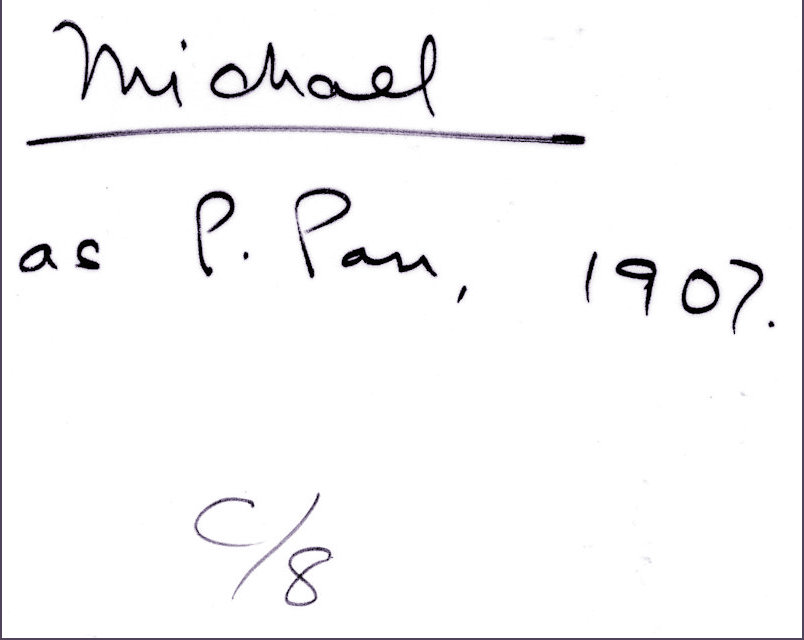 Michael
as P. Pan, 1907.
C/8